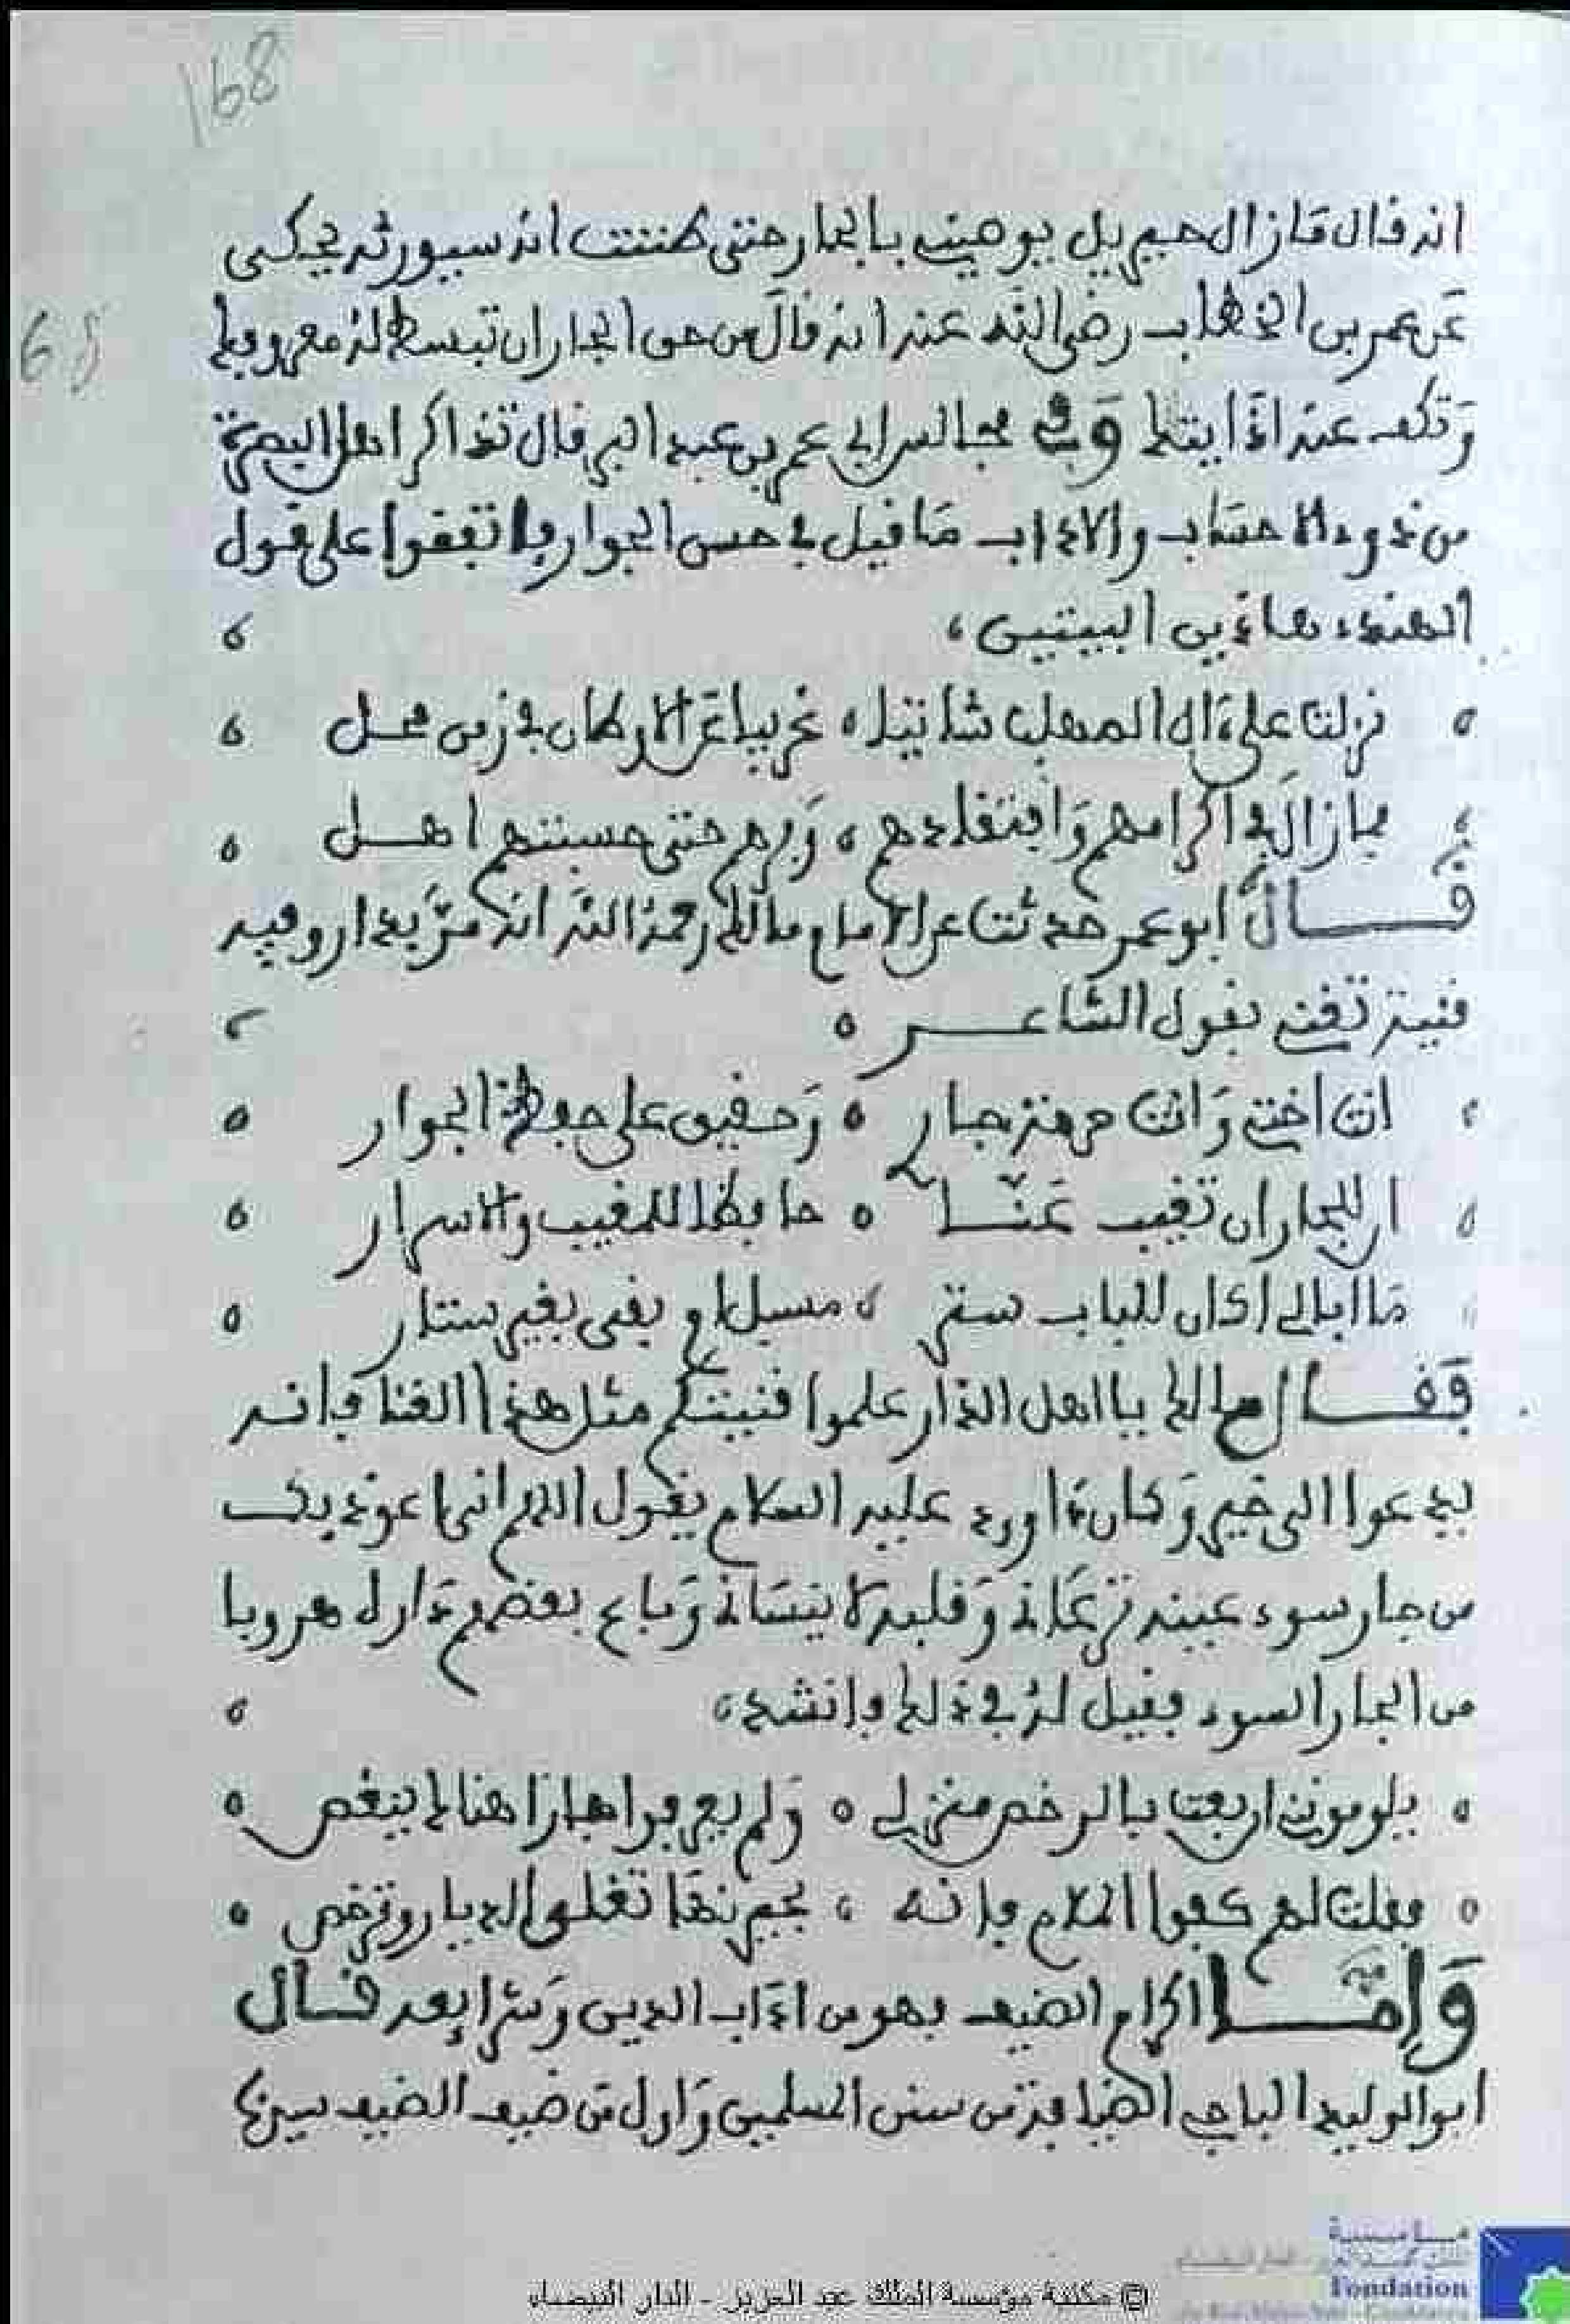 168
68
انه قال مازال جبريل يوصيني بالجار حتى ظننت انه سيورثه يحكى
عن عمر بن الخطاب رضي الله عنه انه قال من حق الجار ان تبسط له معروفك
وتكف عنه اذا ابتك وفي مجالس ابي عمر بن عبد البر قال تذاكر اهل البصرة
من ذوي الاحساب والاداب ما قيل في حسن الجوار فاتفقوا على قول
القائل هاذين البيتين
نزلت على ءال المهلب شاتيا غريبا عن الاوطان في زمن محل
فما زال بي اكرامهم وافتقادهم وبرهم حتى حسبتهم اهل
قال ابو عمر حدثت عن الامام مالك رحمه الله انه مر بدار وفيه
قينة تغني بقول الشاعر
انت اختي وانت حرمة جار وحقيق علي حفظ الجوار
ان للجار ان تغيب عنا حافظا للمغيب والاسرار
ما ابالي اكان للباب ستر مسبل ام بقى بغير ستار
فقال مالك يا اهل الدار علموا قينتكم مثل هذا الغنا فانه
يدعوا الى خير وكان داوود عليه السلام يقول اللهم اني اعوذ بك
من جار سوء عينه ترعاني وقلبه لا ينساني وباع بعضهم داره هروبا
من الجار السوء فقيل له في ذلك فانشد
يلومونني ان بعت بالرخص منزلي ولم يعرفوا جارا هناك ينغص
فقلت لهم كفوا الملام فانه بجيرنها تغلوا الديار وترخص
واما اكرام الضيف فهو من اداب الدين وشرايعه قال
ابو الوليد الباجي الضيافة من سنن المسلمين واول من ضيف الضيف سيدنا
مؤسسة
Fondation
© مكتبة مؤسسة الملك عبد العزيز - الدار البيضاء